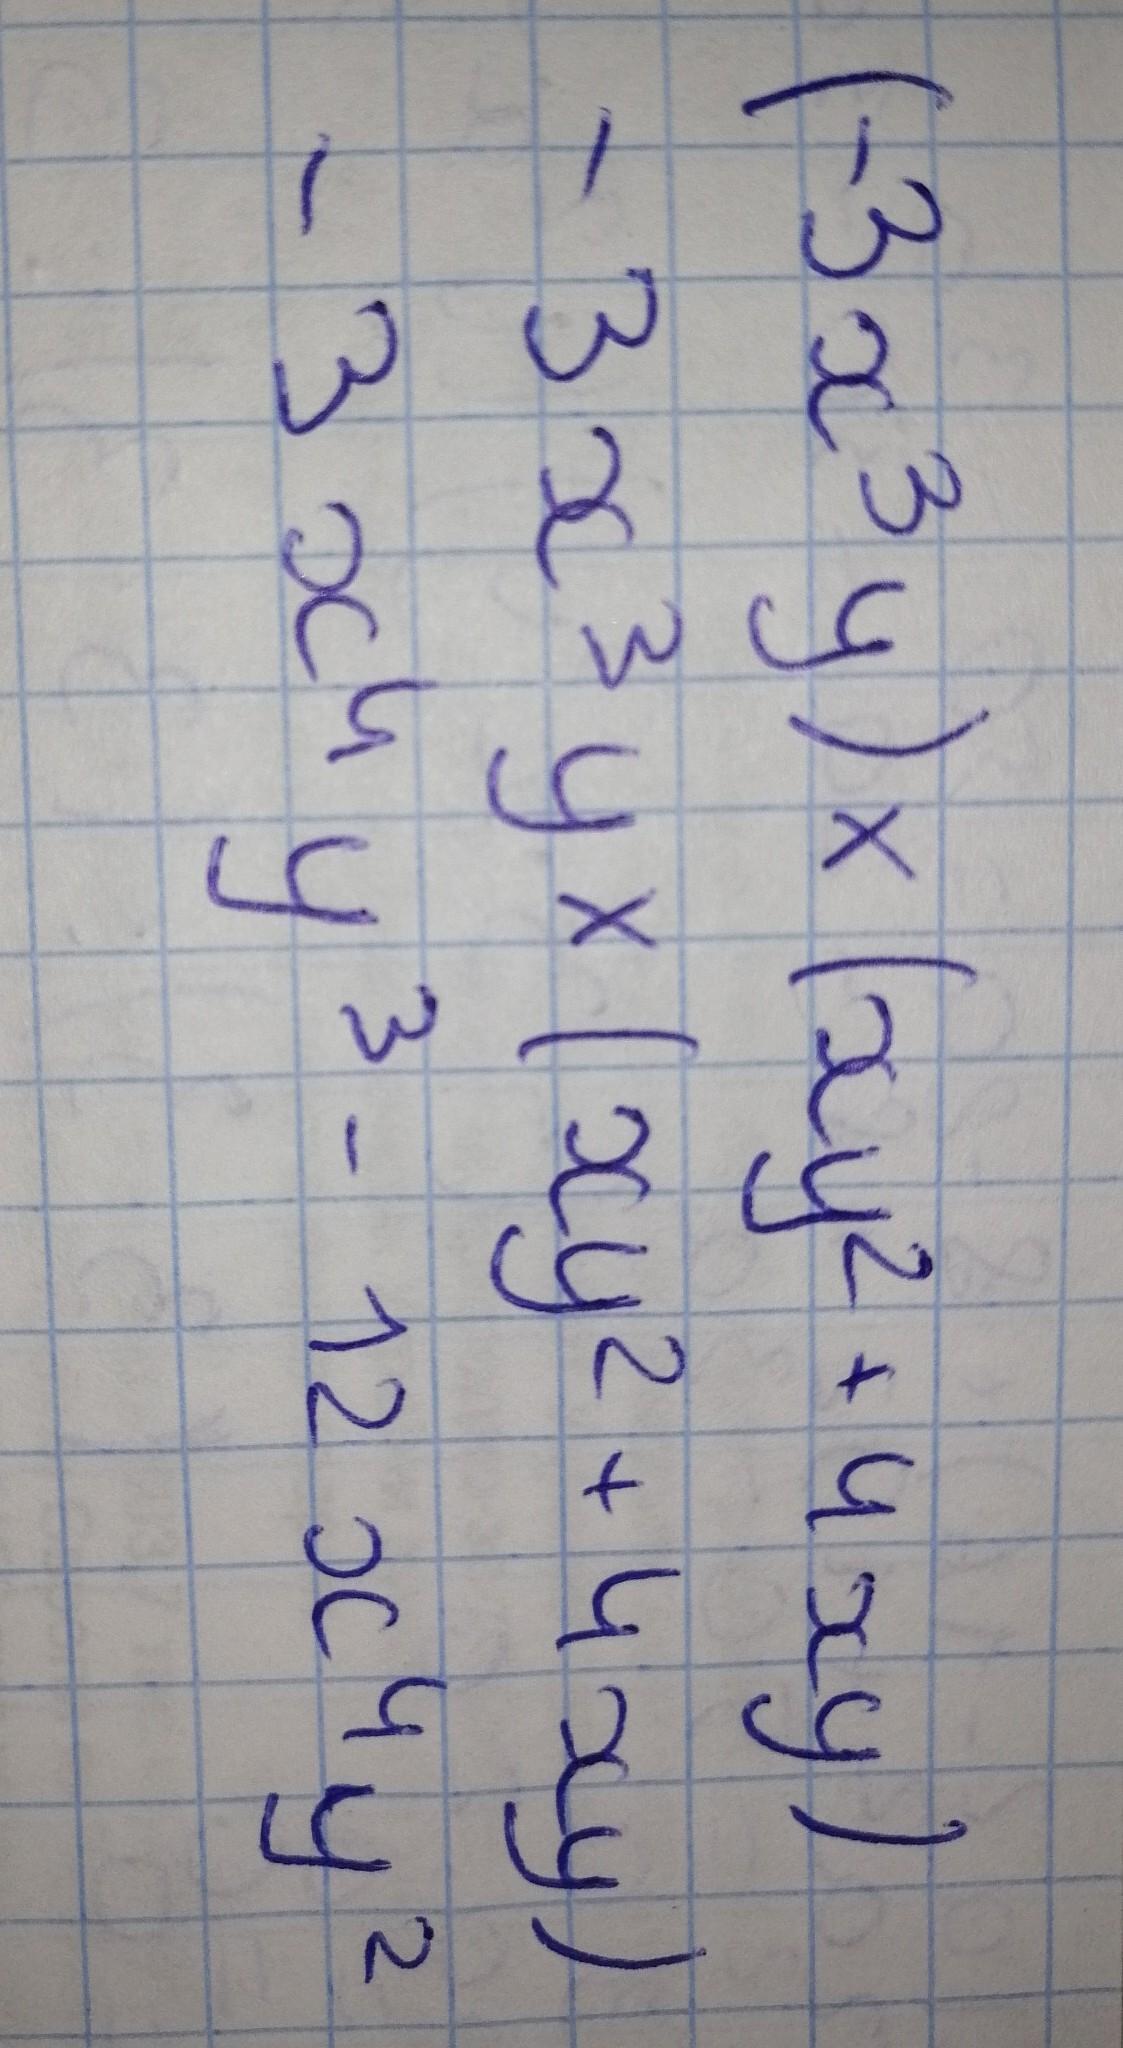 (-3x³y)×(xy²+4xy)
-3x³y×(xy²+4xy)
-3x⁴y³-12x⁴y²